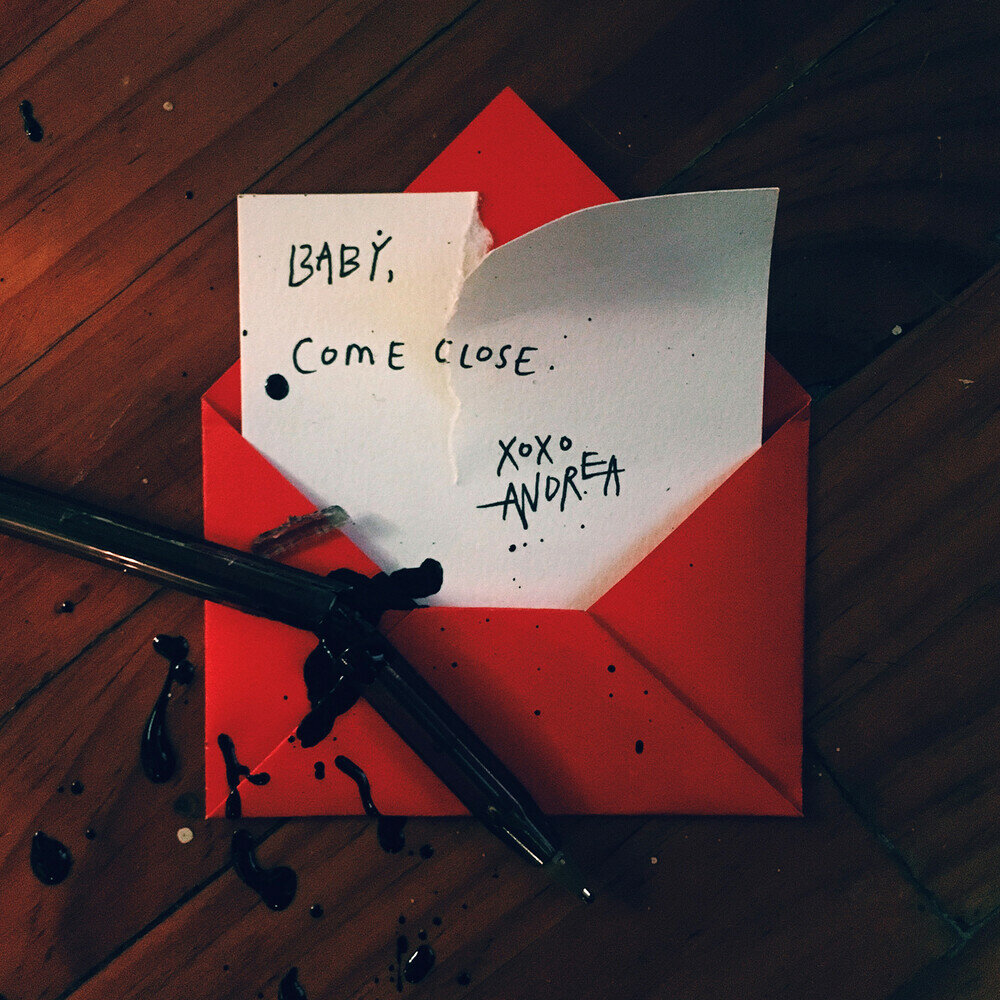 BABY,
COME CLOSE.
XOXO
ANDREA